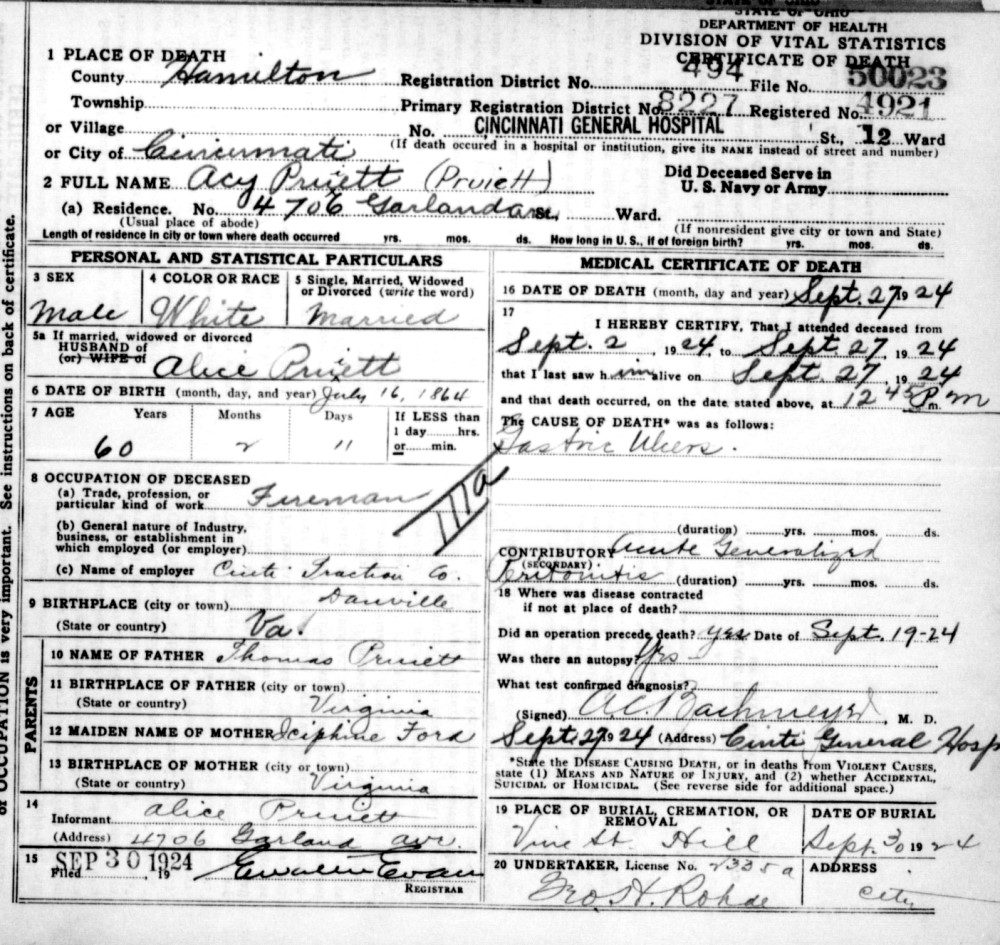 STATE OF OHIO
DEPARTMENT OF HEALTH
DIVISION OF VITAL STATISTICS
CERTIFICATE OF DEATH
1 PLACE OF DEATH
County Hamilton Registration District No. 494 File No. 50023
Township Primary Registration District No. 8227 Registered No. 4921
or Village No. CINCINNATI GENERAL HOSPITAL St., 12 Ward
or City of Cincinnati (If death occured in a hospital or institution, give its NAME instead of street and number)
2 FULL NAME Acy Pruett (Pruiett) Did Deceased Serve in U. S. Navy or Army
(a) Residence. No. 4706 Garland ave St., Ward.
(Usual place of abode) (If nonresident give city or town and State)
Length of residence in city or town where death occurred yrs. mos. ds. How long in U. S., if of foreign birth? yrs. mos. ds.
PERSONAL AND STATISTICAL PARTICULARS
3 SEX 4 COLOR OR RACE 5 Single, Married, Widowed or Divorced (write the word)
Male White Married
5a If married, widowed or divorced
HUSBAND of
(or) WIFE of Alice Pruiett
6 DATE OF BIRTH (month, day, and year) July 16, 1864
7 AGE Years Months Days If LESS than
1 day hrs.
60 2 11 or min.
8 OCCUPATION OF DECEASED
(a) Trade, profession, or particular kind of work Fireman
111a
(b) General nature of Industry, business, or establishment in which employed (or employer)
(c) Name of employer Cinti Traction Co.
9 BIRTHPLACE (city or town) Danville
(State or country) Va.
PARENTS
10 NAME OF FATHER Thomas Pruiett
11 BIRTHPLACE OF FATHER (city or town)
(State or country) Virginia
12 MAIDEN NAME OF MOTHER Iciphine Ford
13 BIRTHPLACE OF MOTHER (city or town)
(State or country) Virginia
14
Informant Alice Pruiett
(Address) 4706 Garland ave.
15 SEP 30 1924
Filed , 19
REGISTRAR
MEDICAL CERTIFICATE OF DEATH
16 DATE OF DEATH (month, day and year) Sept. 27 19 24
17
I HEREBY CERTIFY, That I attended deceased from
Sept. 2, 19 24, to Sept 27, 19 24
that I last saw h im alive on Sept. 27, 19 24
and that death occurred, on the date stated above, at 12 45 P m. m
The CAUSE OF DEATH* was as follows:
Gastric Ulcers.
(duration) yrs. mos. ds.
CONTRIBUTORY Acute Generalized
(SECONDARY)
Peritonitis (duration) yrs. mos. ds.
18 Where was disease contracted
if not at place of death?
Did an operation precede death? Yes Date of Sept. 19-24
Was there an autopsy? Yes
What test confirmed diagnosis?
(Signed) A.C. Bachmeyer, M. D.
Sept. 27 19 24 (Address) Cinti General Hosp
*State the DISEASE CAUSING DEATH, or in deaths from VIOLENT CAUSES,
state (1) MEANS AND NATURE OF INJURY, and (2) whether ACCIDENTAL,
SUICIDAL OR HOMICIDAL. (See reverse side for additional space.)
19 PLACE OF BURIAL, CREMATION, OR REMOVAL DATE OF BURIAL
Vine St. Hill Sept. 30 19 24
20 UNDERTAKER, License No. 2335a ADDRESS
Geo. H. Rohde City
of OCCUPATION is very important. See instructions on back of certificate.